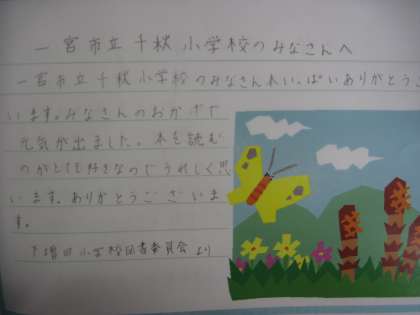 一宮市立千秋小学校のみなさんへ
一宮市立千秋小学校のみなさん本いっぱいありがとうご
います。みなさんのおかげで
元気が出ました。本を読む
のがとても好きなのでうれしく思
います。ありがとうございま
す。
下増田小学校図書委員会より